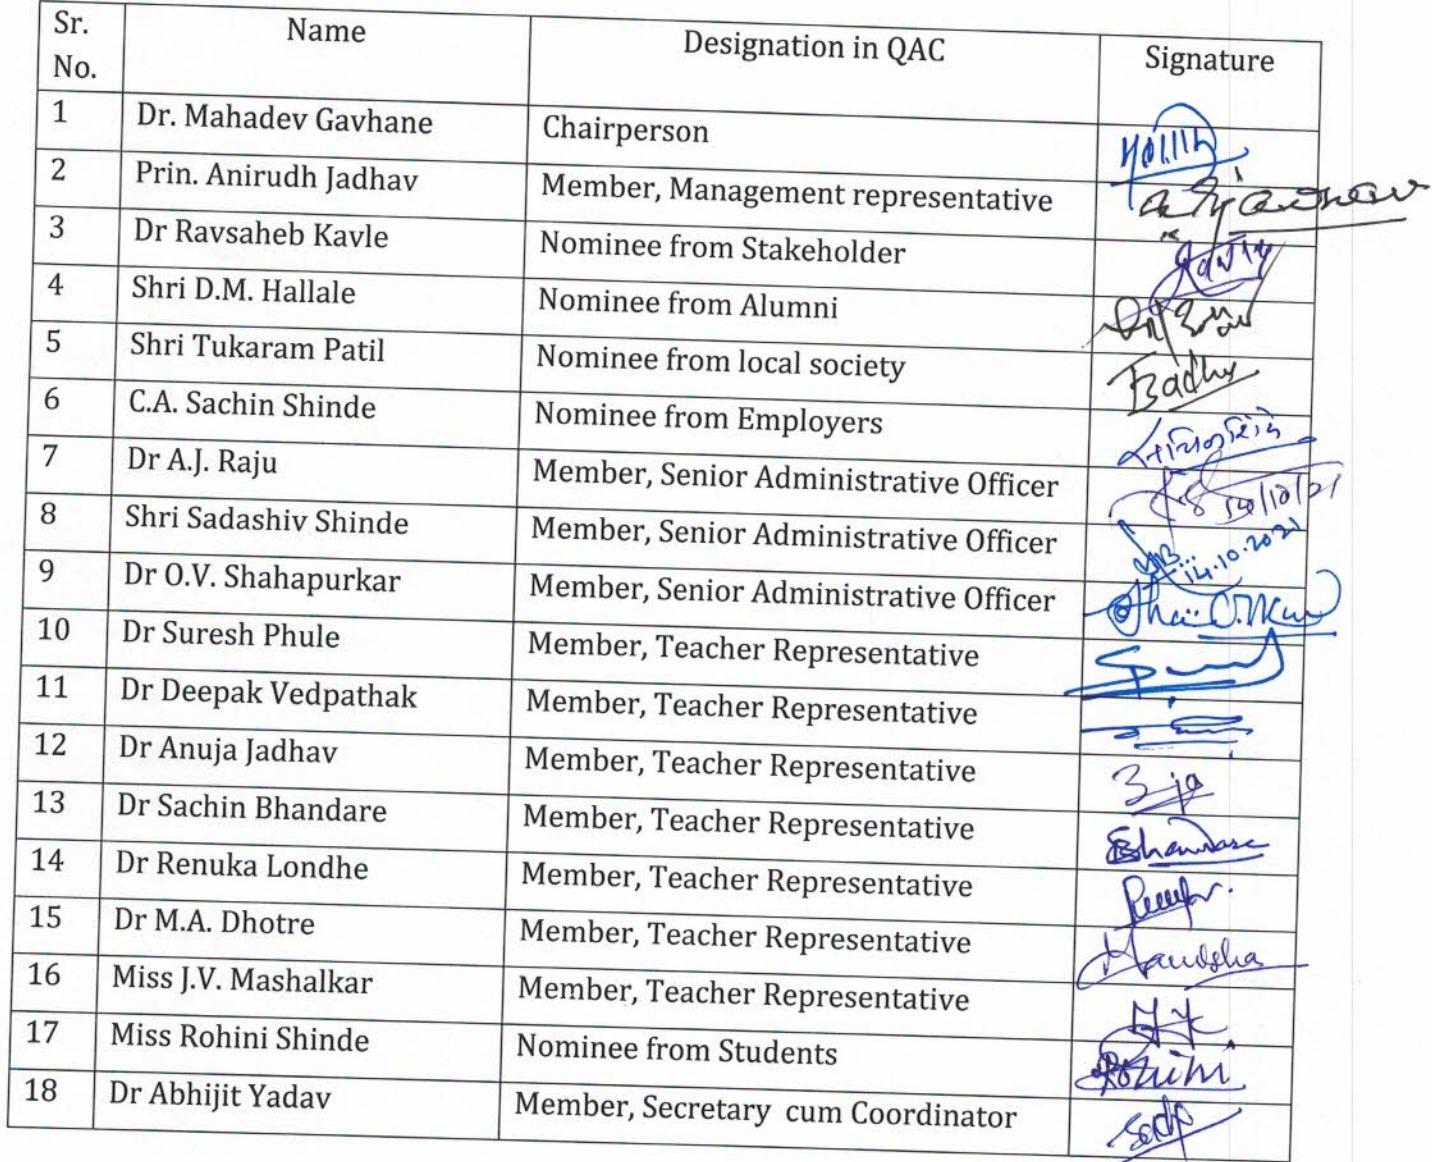 Sr. No. Name Designation in QAC Signature
1 Dr. Mahadev Gavhane Chairperson
2 Prin. Anirudh Jadhav Member, Management representative
3 Dr Ravsaheb Kavle Nominee from Stakeholder
4 Shri D.M. Hallale Nominee from Alumni
5 Shri Tukaram Patil Nominee from local society
6 C.A. Sachin Shinde Nominee from Employers
7 Dr A.J. Raju Member, Senior Administrative Officer
8 Shri Sadashiv Shinde Member, Senior Administrative Officer 14.10.2021
9 Dr O.V. Shahapurkar Member, Senior Administrative Officer
10 Dr Suresh Phule Member, Teacher Representative
11 Dr Deepak Vedpathak Member, Teacher Representative
12 Dr Anuja Jadhav Member, Teacher Representative
13 Dr Sachin Bhandare Member, Teacher Representative Bhandare
14 Dr Renuka Londhe Member, Teacher Representative
15 Dr M.A. Dhotre Member, Teacher Representative
16 Miss J.V. Mashalkar Member, Teacher Representative
17 Miss Rohini Shinde Nominee from Students Rohini
18 Dr Abhijit Yadav Member, Secretary cum Coordinator